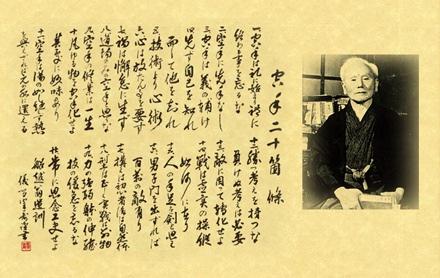 空手二十箇條
一、空手は礼に始り礼に
終る事を忘るな
二、空手に先手なし
三、空手は義の補け
四、先づ自己を知れ
而して他を知れ
五、技術より心術
六、心は放たん事を要す
七、禍は懈怠に生ず
八、道場のみの空手と思ふな
九、空手の修業は一生
十、凡ゆる物を空手化せよ
其処に妙味あり
十一、空手は湯の如し絶えず熱
を与えざれば元の水に還る
十二、勝つ考えを持つな
負けぬ考えは必要
十三、敵に因って転化せよ
十四、戦は虚実の操縦
如何に在り
十五、人の手足を剣と思え
十六、男子門を出づれば
百万の敵有り
十七、構は初心者に後は自然体
十八、型は正しく実戦は別物
十九、力の強弱体の伸縮
技の緩急を忘るな
二十、常に思念工夫せよ
船越翁遺訓